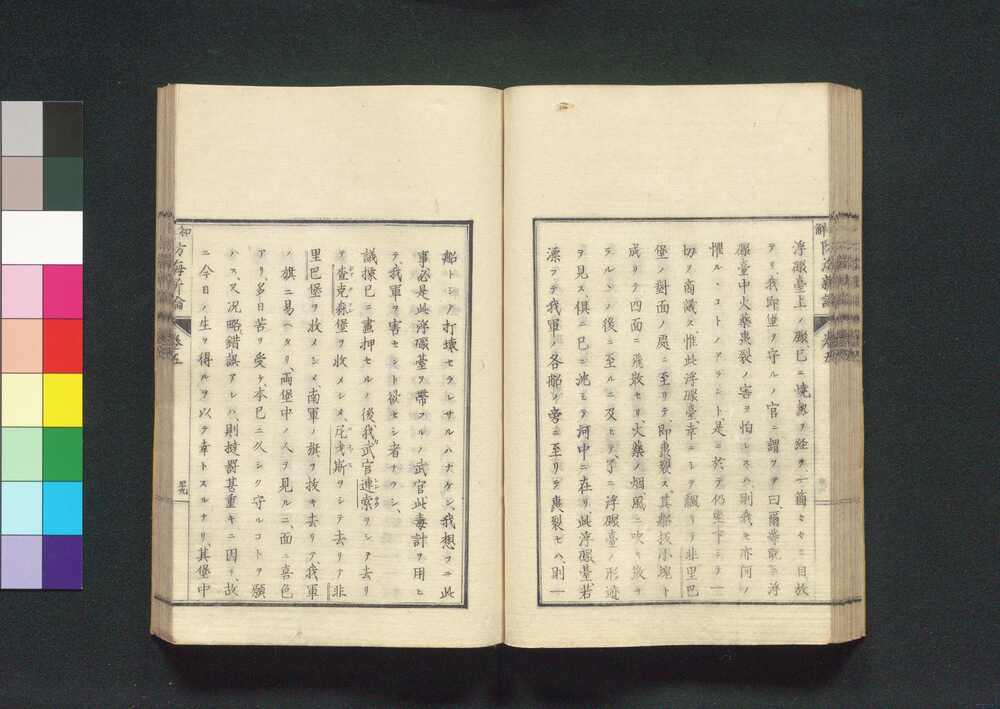 浮礟臺上ノ礟已ニ焼熱ヲ経テ一箇々々ニ自放
ヲリ、我即堡ヲ守ルノ官ニ謂ヲヲ曰、爾等敢テ浮
礟臺中火藥轟裂ノ害ヲ怕レスハ、則我モ亦何ノ
懼ルヽコトノアランヤト、是ニ於テ仍坐下シテ一
切ヲ商議ス、惟此浮礟臺幸ニシテ飄リテ非里巴
堡ノ對面ノ處ニ至リテ即轟裂ス其船板小塊ト
成リテ四面ニ飛散セリ、火藥ノ烟風ニ吹キ散サ
ラルヽノ後ニ至ルニ及ヒテ、了ニ浮礟臺ノ形迹
ヲ見ス倶ニ已ニ沈ミテ河中ニ在リ、此浮礟臺若
漂ヲテ我軍ノ各船ノ旁ニ至リテ轟裂セハ、則一
船トシテ打壊セラレサルハナケン、我想フニ此
事必是此浮礟臺ヲ帶フルノ武官此毒計ヲ用ヒ
テ、我軍ヲ害セント欲セシ者ナラン、
議揀已ニ畫押セルノ後我武官連索ヲシテ去リ
テ査克森堡ヲ收メシメ、尼戈斯ヲシテ去リテ非
里巴堡ヲ收メシメ南軍ノ旗ヲ抜キ去リテ我軍
ノ旗ニ易ヘタリ、兩堡中ノ人ヲ見ルニ、面ニ喜色
アリ、多日苦ヲ受ケ、本已ニ久シク守ルコトヲ願
ハス、又况略錯誤アレハ、則撻罸甚重キニ因リ、故
ニ今日ノ生ヲ得ルヲ以テ幸トスルナリ、其堡中
防海新論
巻五